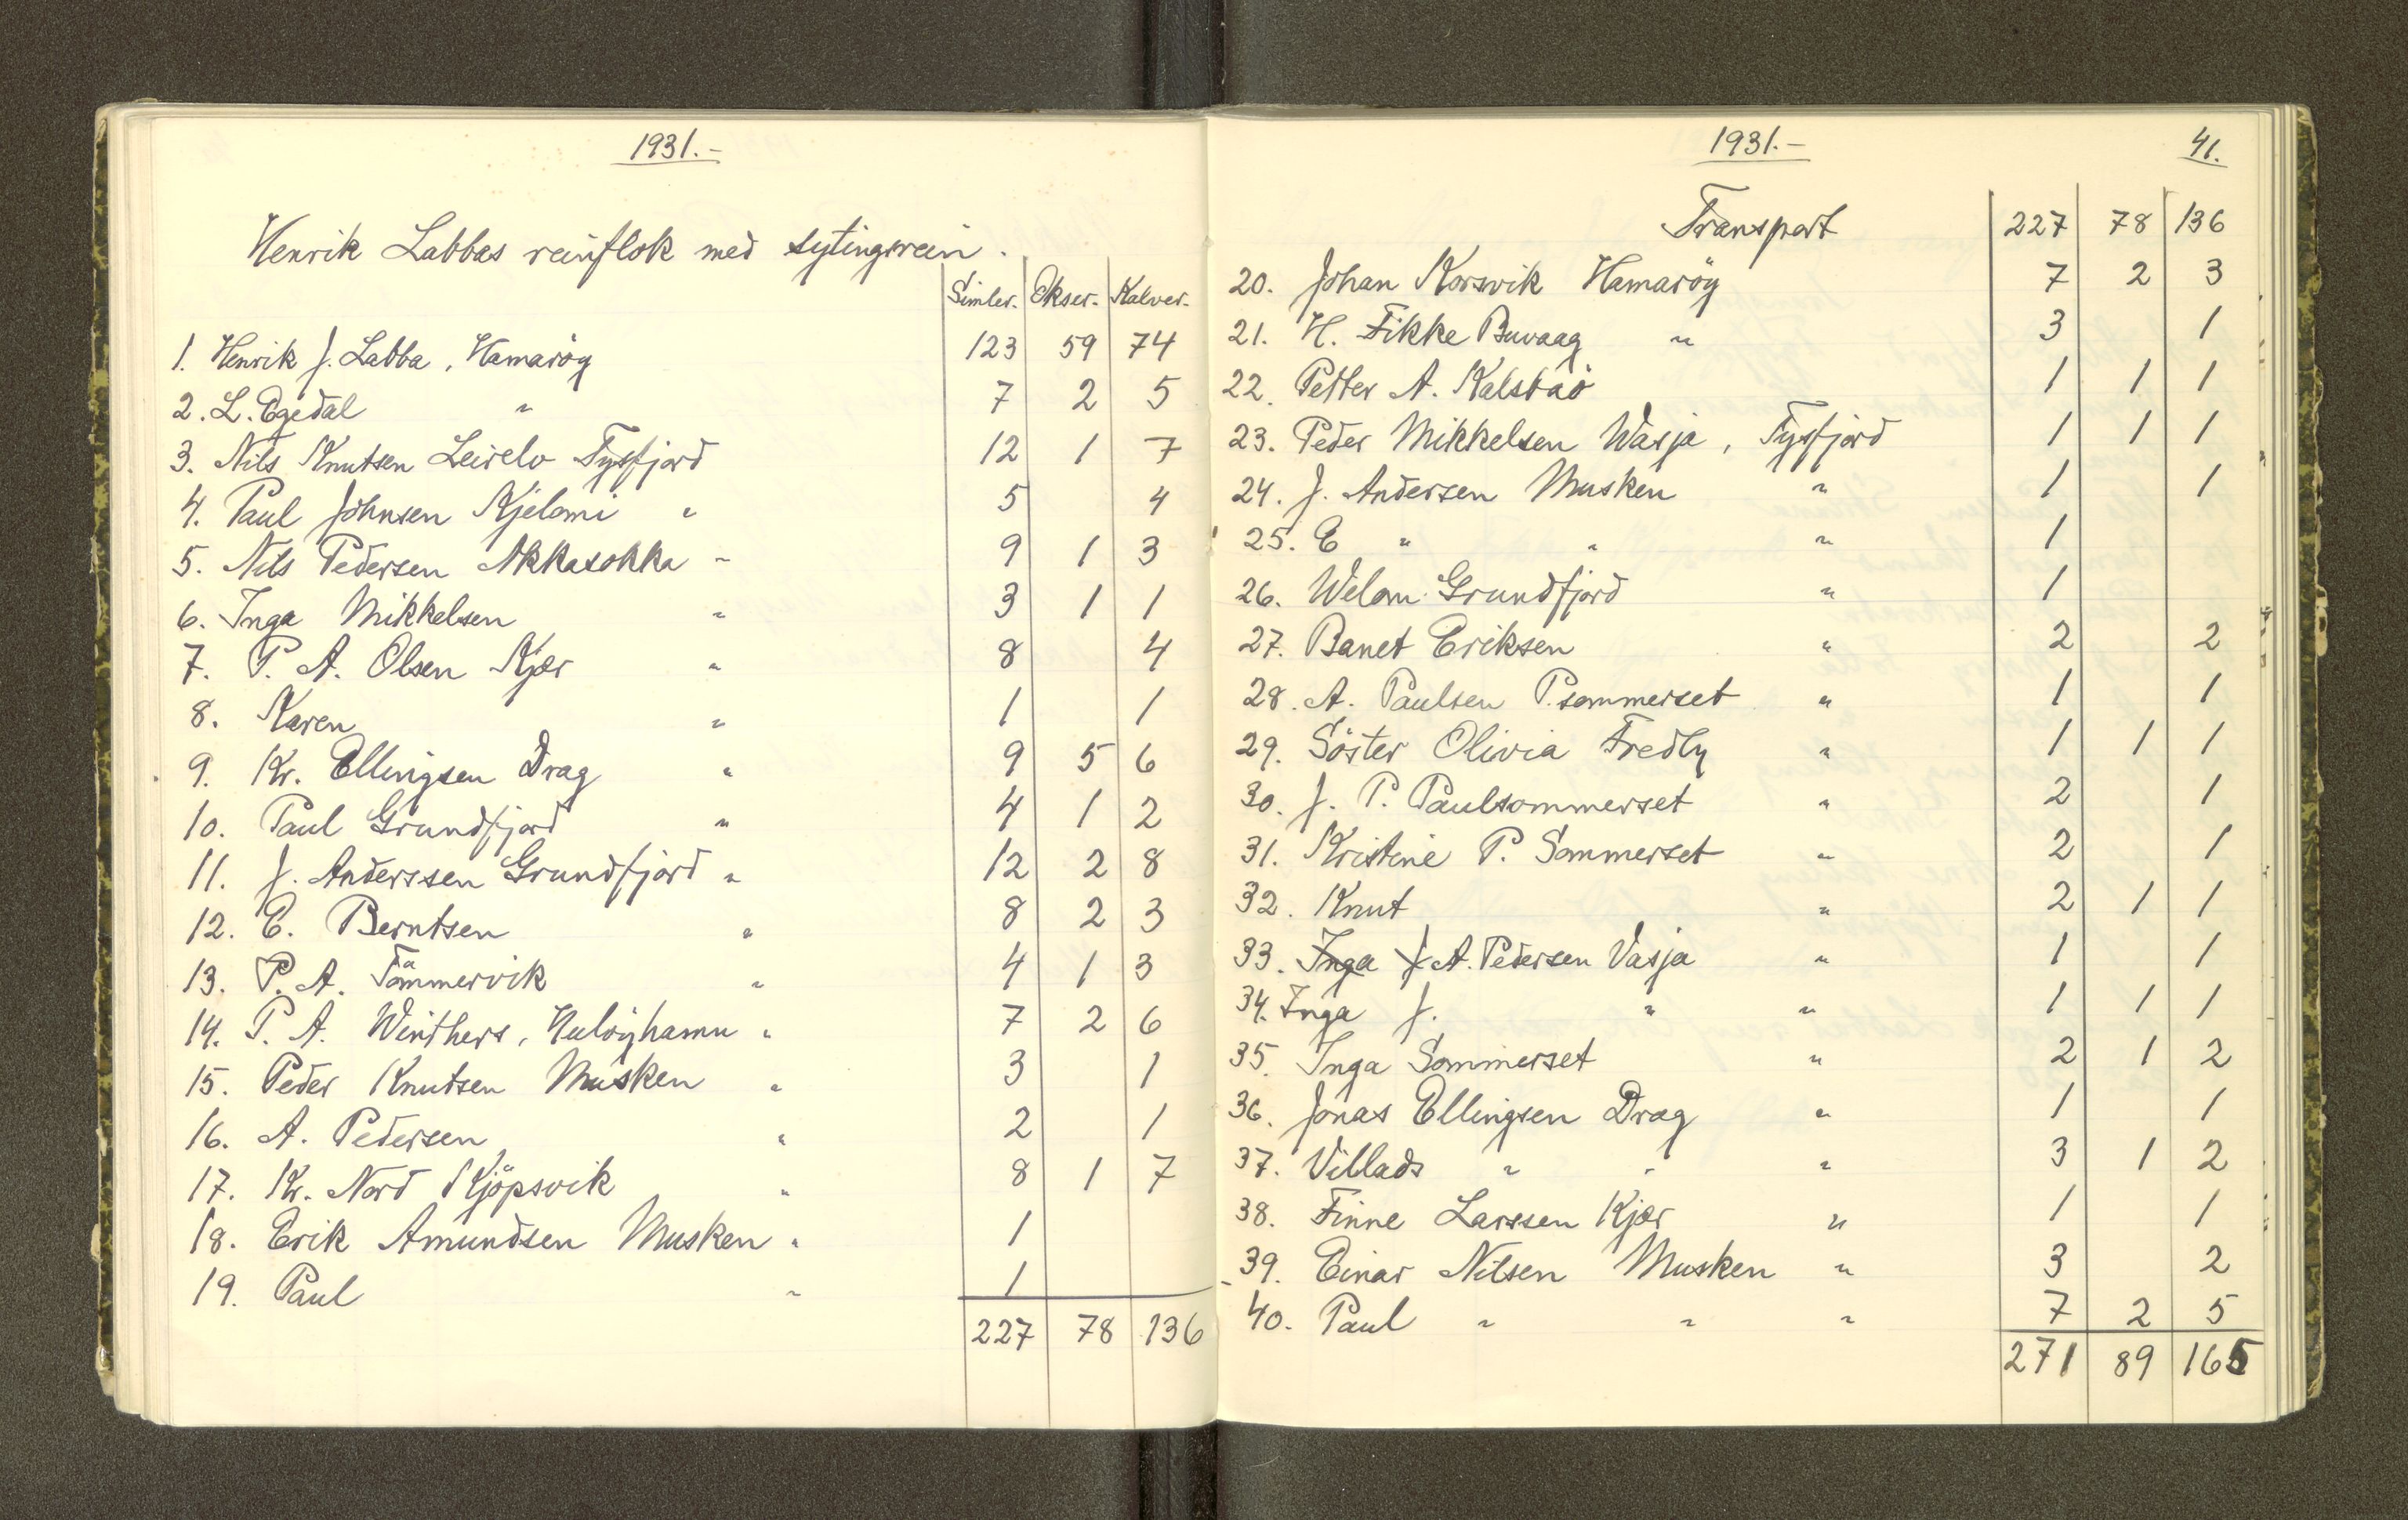 1931.-
Henrik Labbas reinflok med sytingsrein.
Simler. Okser. Kalver.
1. Henrik J. Labba, Hamaröy 123 59 74
2. L. Egedal " 7 2 5
3. Nils Knutsen Leirelv Tysfjord 12 1 7
4. Paul Johnsen Kjelomi " 5 4
5. Nils Pedersen Akkasokka " 9 1 3
6. Inga Mikkelsen " 3 1 1
7. P. A. Olsen Kjær " 8 4
8. Karen " 1 1
9. Kr. Ellingsen Drag " 9 5 6
10. Paul Grundfjord " 4 1 2
11. J. Anderssen Grundfjord " 12 2 8
12. E. Berntsen " 8 2 3
13. P. A. Tömmervik " 4 1 3
14. P. A. Winthers, Hulöyhamn " 7 2 6
15. Peder Knutsen Musken " 3 1
16. A. Pedersen " 2 1
17. Kr. Nord Kjöpsvik " 8 1 7
18. Erik Amundsen Musken " 1
19. Paul " 1
227 78 136
1931.- 41.
Transport 227 78 136
20. Johan Korsvik Hamaröy 7 2 3
21. H. Fikke Buvaag " 3 1
22. Petter A. Kalsbaö 1 1 1
23. Peder Mikkelsen Wasja, Tysfjord 1 1 1
24. J. Andersen Musken " 1 1
25. E " " " 1
26. Welom Grundfjord " 1
27. Banet Eriksen " 2 2
28. A. Paulsen P.sommerset " 1 1
29. Söster Olivia Fredly " 1 1 1
30. J. P. Paulsommerset " 2 1
31. Kristine P. Sommerset " 2 1
32. Knut " 2 1 1
33. Inga J A. Pedersen Vasja " 1 1
34. Inga J. " " 1 1 1
35. Inga Sommerset " 2 1 2
36. Jonas Ellingsen Drag " 1 1
37. Villads " " " 3 1 2
38. Finne Larssen Kjær " 1 1
39. Einar Nilsen Musken " 3 2
40. Paul " " " 7 2 5
271 89 165